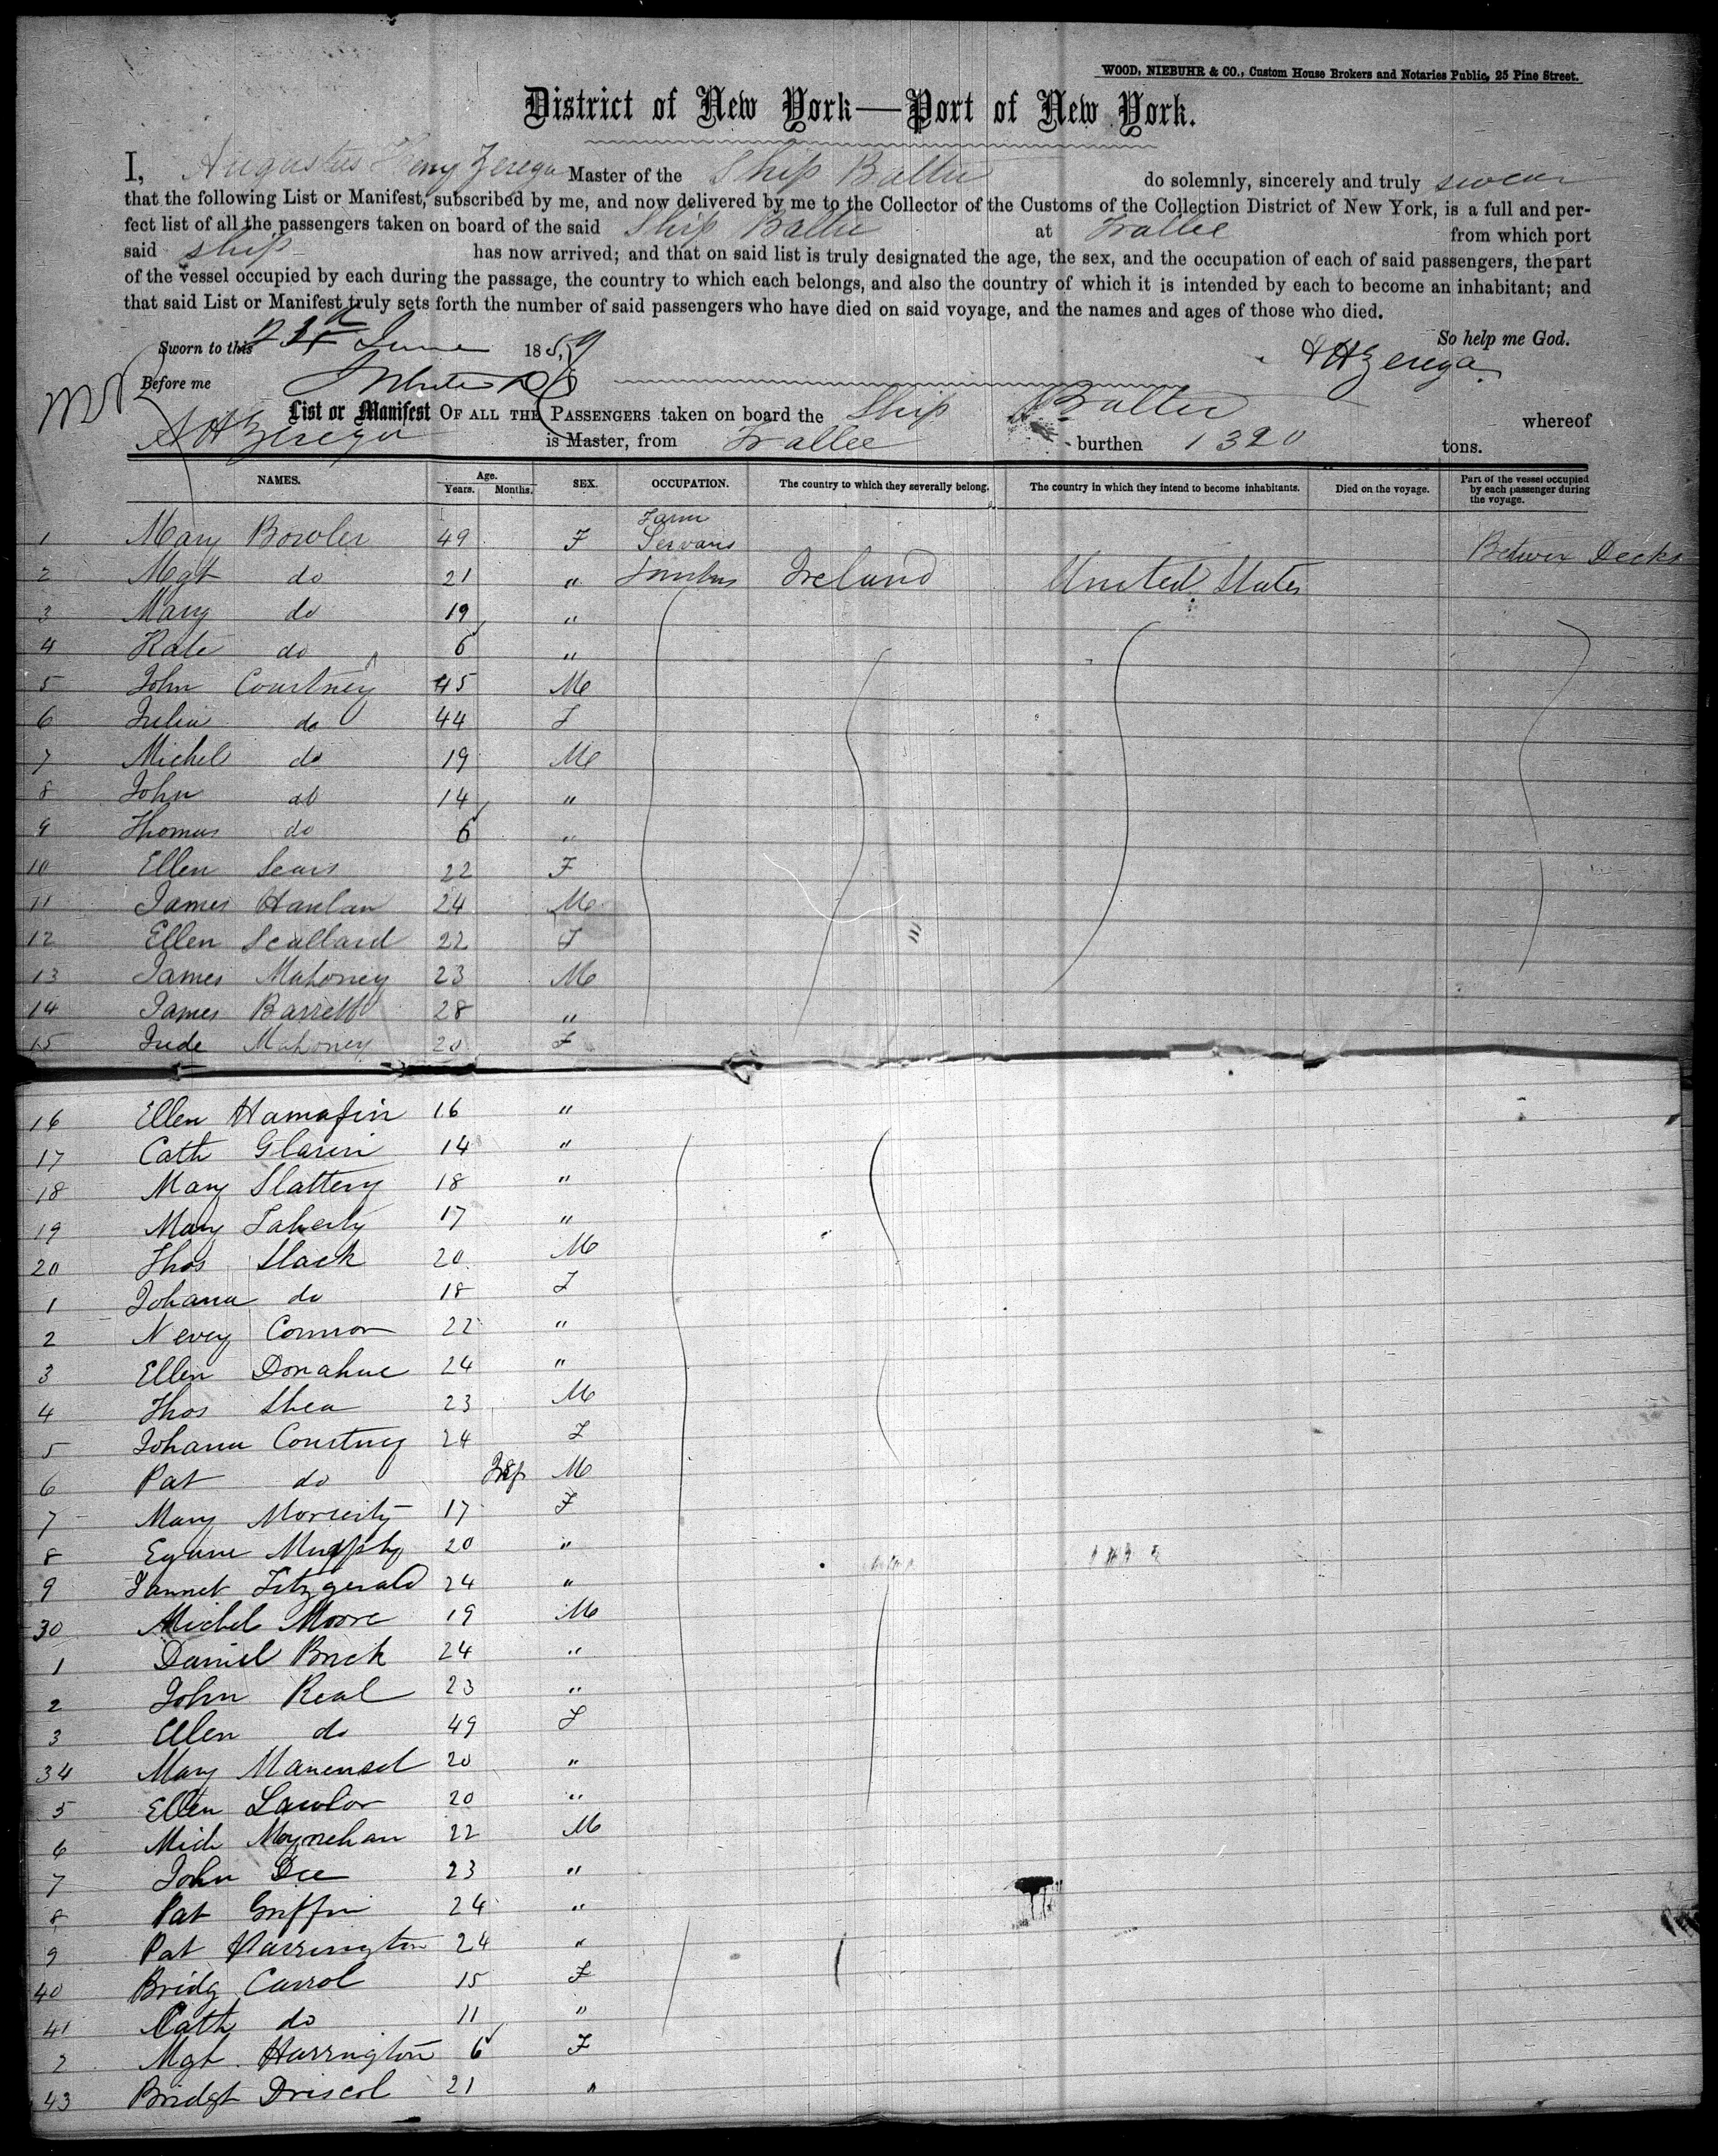 WOOD, NIEBUHR & CO., Custom House Brokers and Notaries Public, 25 Pine Street.
District of New York—Port of New York.
I, Augustus Henry Zerega Master of the Ship Baltic do solemnly, sincerely and truly swear
that the following List or Manifest, subscribed by me, and now delivered by me to the Collector of the Customs of the Collection District of New York, is a full and per-
fect list of all the passengers taken on board of the said Ship Baltic at Trallee from which port
said ship has now arrived; and that on said list is truly designated the age, the sex, and the occupation of each of said passengers, the part
of the vessel occupied by each during the passage, the country to which each belongs, and also the country of which it is intended by each to become an inhabitant; and
that said List or Manifest truly sets forth the number of said passengers who have died on said voyage, and the names and ages of those who died.
So help me God.
Sworn to this June 1859 AHZerega
Before me
List or Manifest OF ALL THE PASSENGERS taken on board the Ship Baltic whereof
AHZerega is Master, from Trallee burthen 1320 tons.
NAMES. Age. Years. Months. SEX. OCCUPATION. The country to which they severally belong. The country in which they intend to become inhabitants. Died on the voyage. Part of the vessel occupied by each passenger during the voyage.
1 Mary Bowler 49 F Farm Servants Between Decks
2 Mgt do 21 " Ireland United States
3 Mary do 19 "
4 Kate do 6 "
5 John Courtney 45 M
6 Julia do 44 F
7 Michel do 19 M
8 John do 14 "
9 Thomas do 6 "
10 Ellen Sears 22 F
11 James Hanlan 24 M
12 Ellen Scullard 22 F
13 James Mahoney 23 M
14 James Barrett 28 "
15 Jude Mahoney 20 F
16 Ellen Hamafin 16 "
17 Cath 14 "
18 Mary Slattery 18 "
19 Mary Faherty 17 "
20 Thos Slack 20 M
1 Johana do 18 F
2 Nevey Connor 22 "
3 Ellen Donahue 24 "
4 Thos Shea 23 M
5 Johana Courtney 24 F
6 Pat do Inf M
7 Mary Morierity 17 F
8 Murphy 20 "
9 Jannet Fitzgerald 24 "
30 Michel Moore 19 M
1 Daniel Brick 24 "
2 John Real 23 "
3 Ellen do 49 F
34 Mary 20 "
5 Ellen Lawlor 20 "
6 Mich Moynehan 22 M
7 John Dee 23 "
8 Pat Griffin 24 "
9 Pat Harrington 24 "
40 Bridg Carrol 15 F
41 Cath do 11 "
2 Mgt Harrington 6 F
43 Bridgt Driscol 21 "